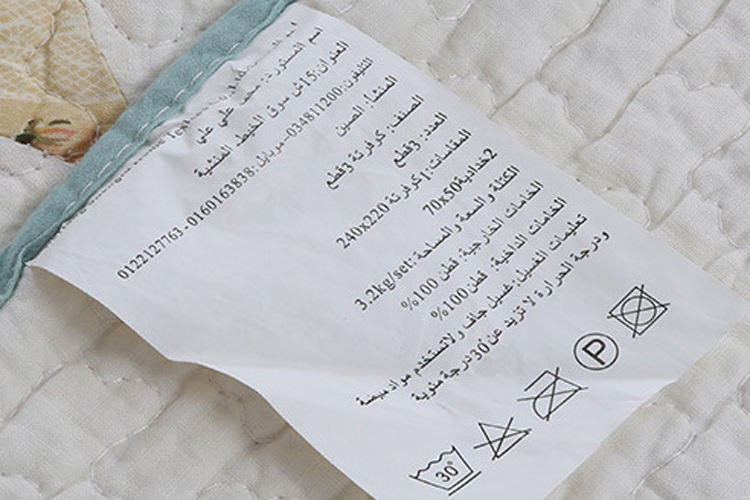 اسم المستورد: حفظ علي علي
العنوان:15ش سوق الخيط المنشية
التليفون:034811200-موبايل:0160163838 - 0122127763
المنشا: الصين
الصنف: كوفرتة 3قطع
العدد: 3قطع
المقاسات:1كوفرتة 220x240
2خدادية50x70
الكتلة والسعة والمساحة:3.2kg/set
الخامات الخارجية: قطن 100%
الخامات الداخلية: قطن 100%
تعليمات الغسيل:غسيل جاف ولاتستخدم مواد مبيضة
ودرجة الحرارة لا تزيد عن 30درجة مئوية
30° P